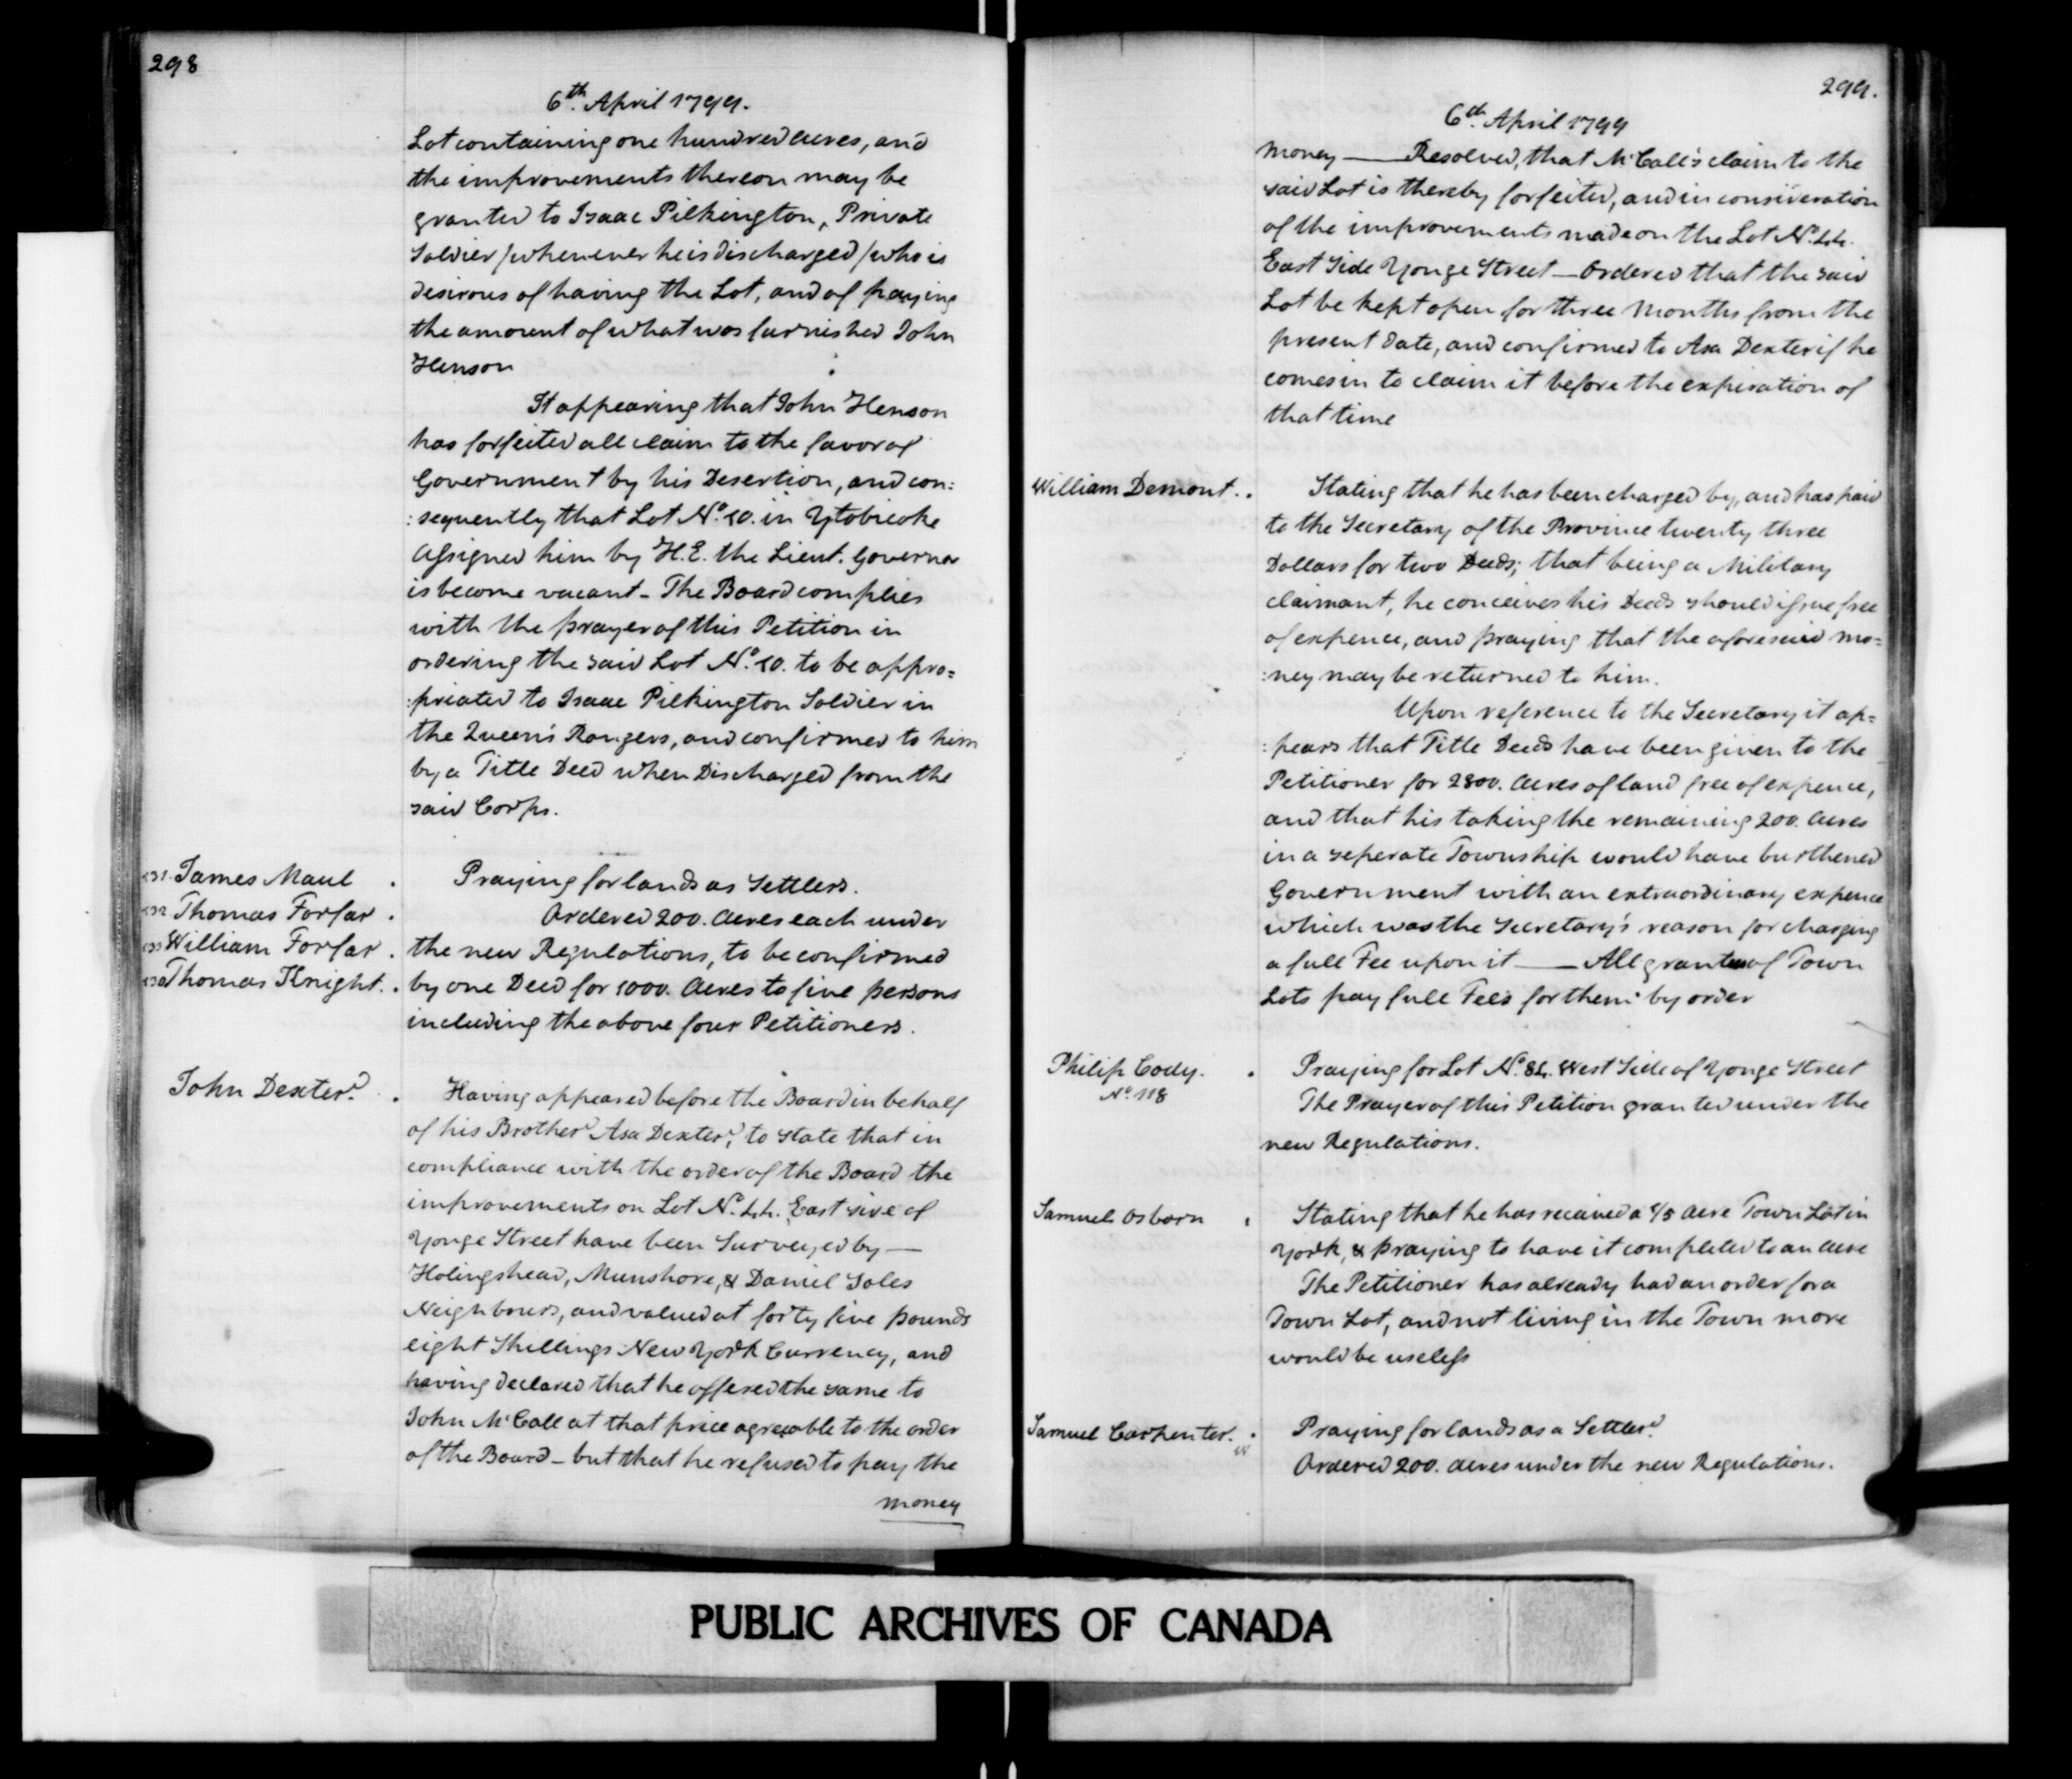 298
6th. April 1799.
Lot containing one hundred acres, and
the improvements thereon may be
granted to Isaac Pilkington, Private
Soldier /whenever he is discharged/ who is
desirous of having the Lot, and of paying
the amount of what was furnished John
Henson
It appearing that John Henson
has forfeited all claim to the favor of
Government by his Desertion, and con:
:sequently that Lot No. 10. in Ytobicoke
assigned him by H.E. the Lieut. Governor
is become vacant - The Board complies
with the prayer of this Petition in
ordering the said Lot No. 10. to be appro=
:priated to Isaac Pilkington Soldier in
the Queen's Rangers, and confirmed to him
by a Title Deed when Discharged from the
said Corps.
James Maul . Praying for lands as Settlers.
Thomas Forfar . Ordered 200. Acres each under
William Forfar . the new Regulations, to be confirmed
Thomas Knight. . by one Deed for 1000. Acres to five persons
including the above four Petitioners.
John Dexter. . Having appeared before the Board in behalf
of his Brother Asa Dexter, to state that in
compliance with the order of the Board the
improvements on Lot No. 44. East side of
Yonge Street have been Surveyed by —
Holingshead, Munshore, & Daniel Soles
Neighbours, and valued at forty five pounds
eight Shillings New York Currency, and
having declared that he offered the same to
John McCall at that price agreeable to the order
of the Board - but that he refused to pay the
money
299.
6th. April 1799
Money — Resolved, that McCall's claim to the
said Lot is thereby forfeited, and in consideration
of the improvements made on the Lot No. 44.
East Side Yonge Street — Ordered that the said
Lot be kept open for three Months from the
present date, and confirmed to Asa Dexter if he
comes in to claim it before the expiration of
that time
William Demont. . Stating that he has been charged by, and has paid
to the Secretary of the Province twenty three
Dollars for two Deeds; that being a Military
claimant, he conceives his Deeds should issue free
of expence, and praying that the aforesaid mo=
:ney may be returned to him.
Upon reference to the Secretary it ap=
:pears that Title Deeds have been given to the
Petitioner for 2800. Acres of land free of expence,
and that his taking the remaining 200. Acres
in a seperate Township would have burthened
Government with an extraordinary expence
which was the Secretary's reason for charging
a full Fee upon it — All grantees of Town
Lots pay full Fees for them by order
Philip Cody. . Praying for Lot No. 84. West Side of Yonge Street
No. 118 The Prayer of this Petition granted under the
new Regulations.
Samuel Osborn . Stating that he has received a 1/5 Acre Town Lot in
York, & praying to have it completed to an Acre
The Petitioner has already had an order for a
Town Lot, and not living in the Town more
would be useless
Samuel Carpenter. . Praying for lands as a Settler.
Ordered 200. Acres under the new Regulations.
PUBLIC ARCHIVES OF CANADA